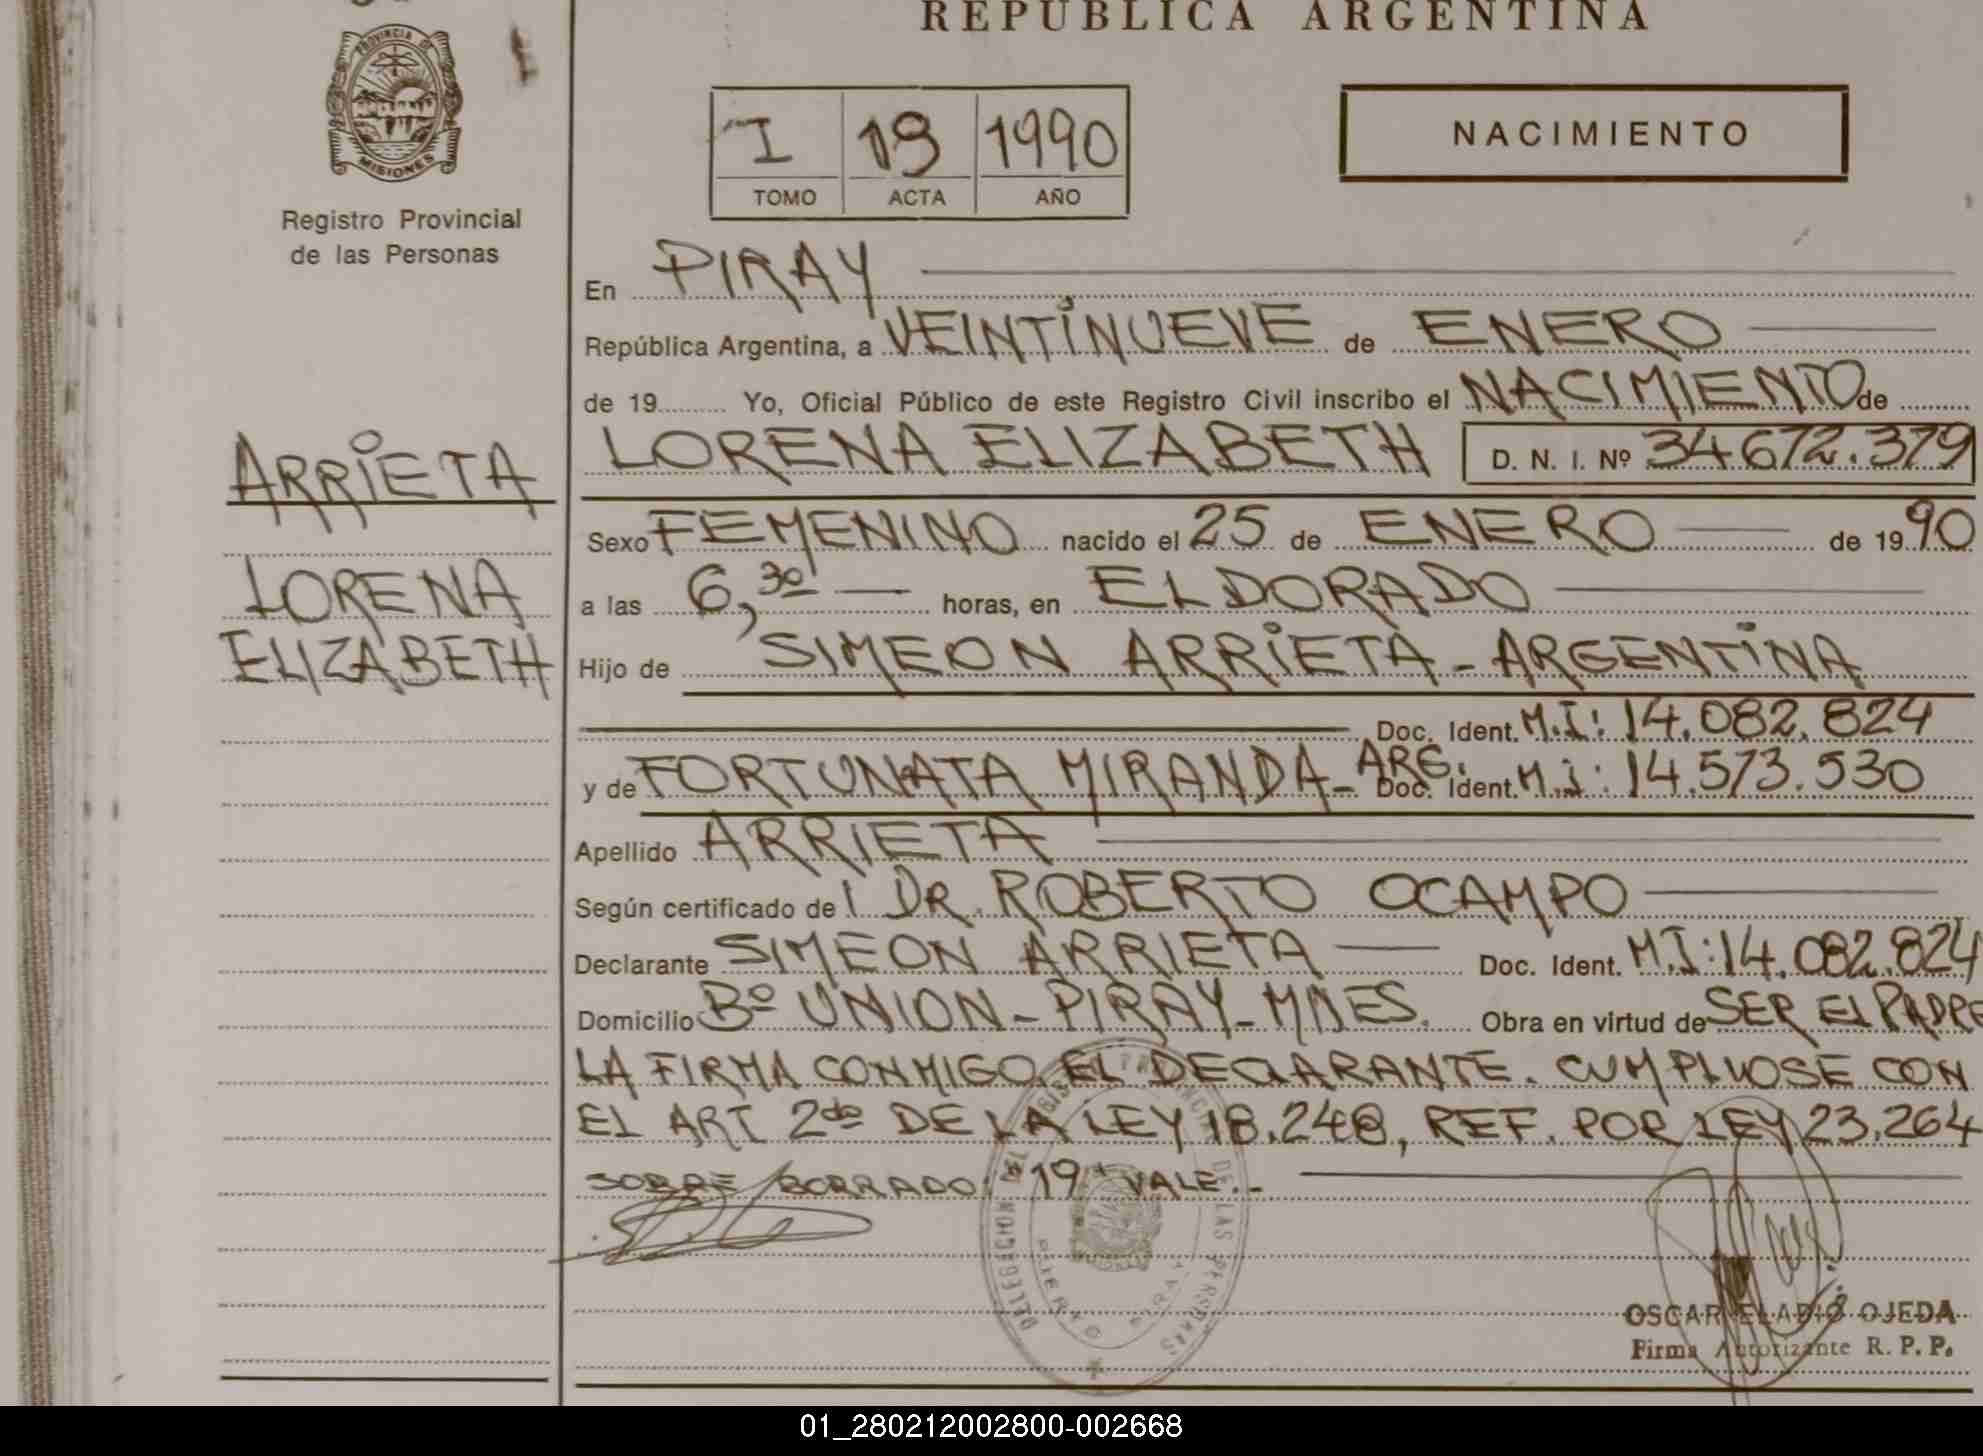 REPUBLICA ARGENTINA
PROVINCIA DE
MISIONES
Registro Provincial
de las Personas
I 19 1990
TOMO ACTA AÑO
NACIMIENTO
En PIRAY
República Argentina, a VEINTINUEVE de ENERO
de 19 Yo, Oficial Público de este Registro Civil inscribo el NACIMIENTO de
LORENA ELIZABETH D. N. I. Nº 34672.379
ARRIETA
LORENA
ELIZABETH
Sexo FEMENINO nacido el 25 de ENERO de 19 90
a las 6,30 horas, en ELDORADO
Hijo de SIMEON ARRIETA - ARGENTINA
Doc. Ident. M.I: 14.082.824
y de FORTUNATA MIRANDA - ARG. Doc. Ident. M.I: 14.573.530
Apellido ARRIETA
Según certificado de l DR. ROBERTO OCAMPO
Declarante SIMEON ARRIETA Doc. Ident. M.I: 14.082.824
Domicilio Bº UNION - PIRAY - MNES. Obra en virtud de SER EL PADRE
LA FIRMA CONMIGO EL DECLARANTE. CUMPLIOSE CON
EL ART 2do DE LA LEY 18.248, REF. POR LEY 23.264
SOBRE BORRADO: 19 VALE.-
DELEGACION DEL REGISTRO PROVINCIAL DE LAS PERSONAS
PUERTO PIRAY
OSCAR ELADIO OJEDA
Firma Autorizante R. P. P.
01_280212002800-002668